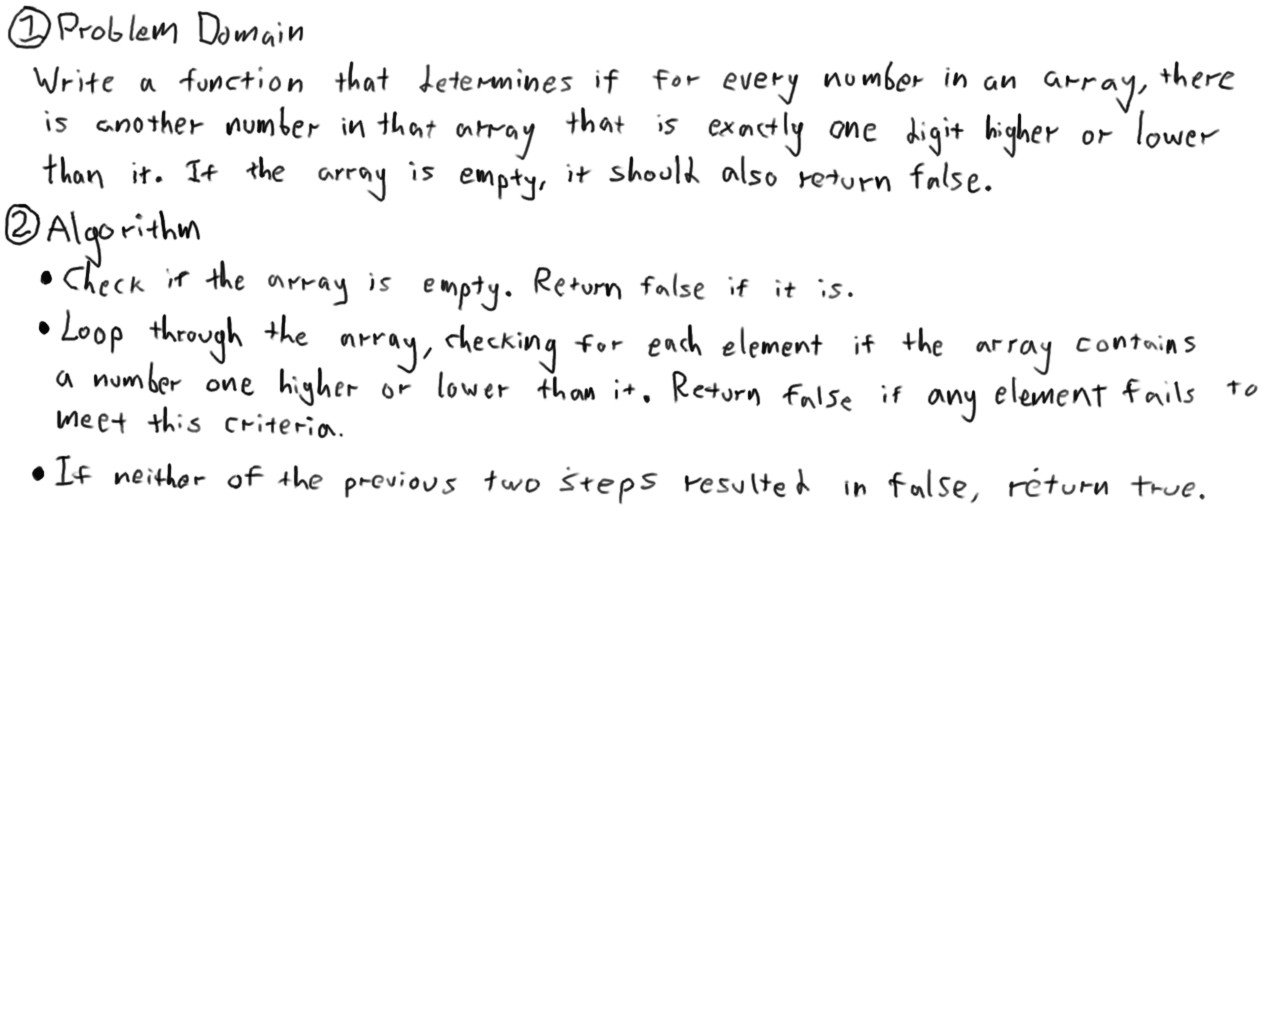 ① Problem Domain
Write a function that determines if for every number in an array, there
is another number in that array that is exactly one digit higher or lower
than it. If the array is empty, it should also return false.
② Algorithm
• Check if the array is empty. Return false if it is.
• Loop through the array, checking for each element if the array contains
a number one higher or lower than it. Return false if any element fails to
meet this criteria.
• If neither of the previous two steps resulted in false, return true.